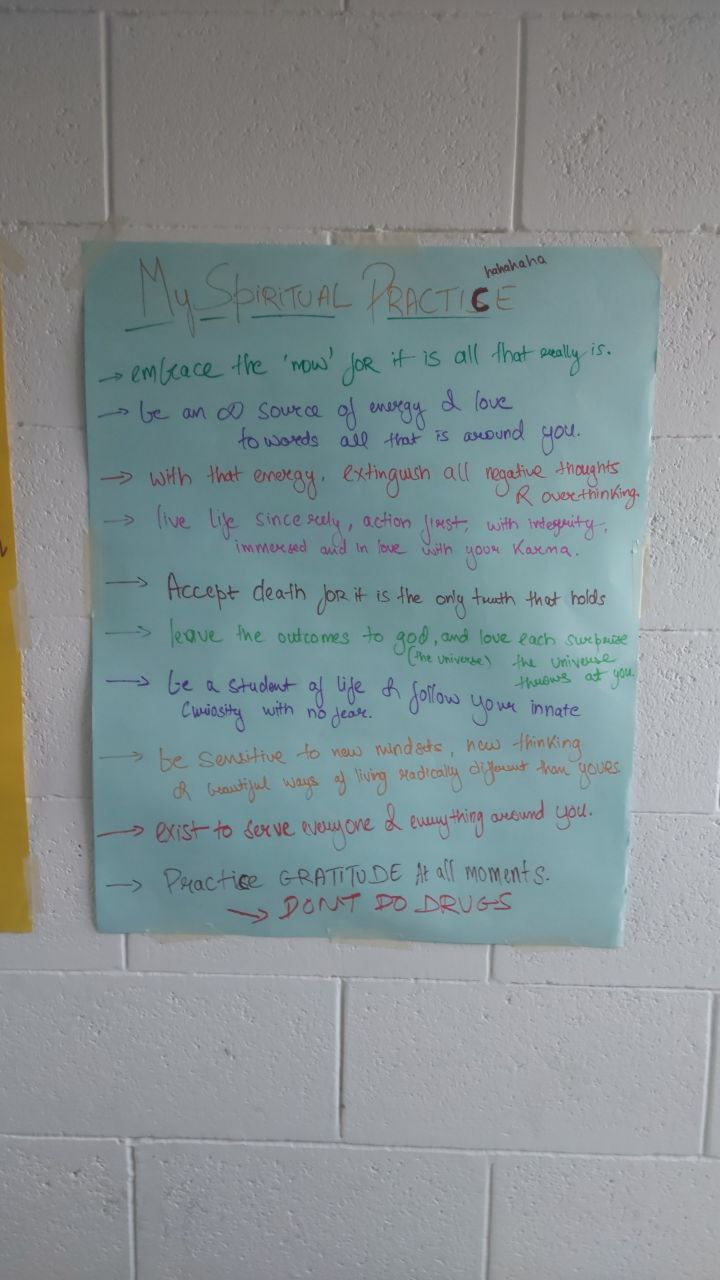 hahahaha
My SPIRITUAL PRACTICE
→ embrace the 'now' for it is all that really is.
→ be an ∞ source of energy & love
towords all that is around you.
→ with that energy, extinguish all negative thoughts
& overthinking.
→ live life sincerely, action first, with integrity,
immersed and in love with your Karma.
→ Accept death for it is the only truth that holds
→ leave the outcomes to god, and love each surprise
(the universe) the universe
throws at you
→ be a student of life & follow your innate
Curiosity with no fear.
→ be sensitive to new mindsets, new thinking
& beautiful ways of living radically different than yours
→ exist to serve everyone & everything around you.
→ Practice GRATITUDE At all moments.
→ DONT DO DRUGS